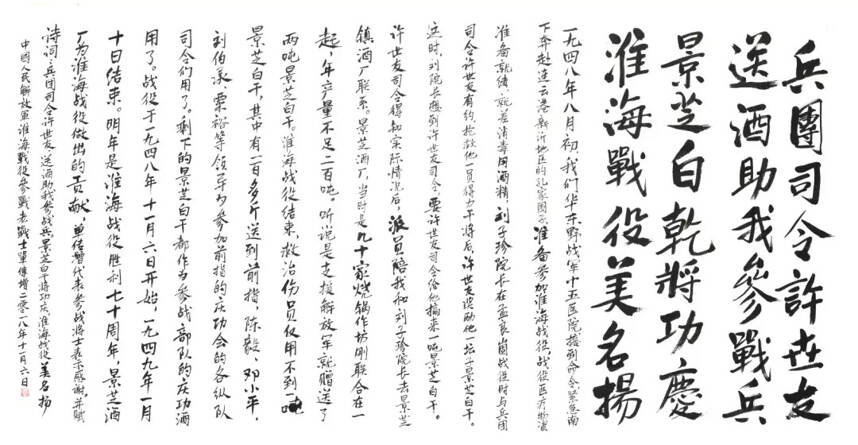 兵團司令許世友
送酒助我參戰兵
景芝白乾將功慶
淮海戰役美名揚
一九四八年八月初，我们华东野战军十五医院接到命令紧急南
下奔赴连云港新沂地区的孔家围子准备参加淮海战役。战役医疗物资
准备就绪，就差消毒用酒精，刘子珍院长在孟良崮战役时与兵团
司令许世友有约，抢救他一员得力干将后，许世友奖励他一坛子景芝白干。
这时，刘院长想到许世友司令，要许世友司令给他搞来一吨景芝白干。
许世友司令得知实际情况后，派员陪我和刘子珍院长去景芝
镇酒厂联系。景芝酒厂，当时是九十家烧锅作坊刚联合在一
起，年产量不足二百吨。听说是支援解放军就赠送了
两吨景芝白干。淮海战役结束，救治伤员仅用不到一吨
景芝白干。其中有一百多斤送到前指，陈毅，邓小平，
刘伯承，粟裕等领导为参加前指的庆功会的各纵队
司令们用了。剩下的景芝白干都作为参战部队的庆功酒
用了。战役于一九四八年十一月六日开始，一九四九年一月
十日结束。明年是淮海战役胜利七十周年，景芝酒
厂为淮海战役做出的贡献，单传增代表参战将士表示感谢。并赋
诗词：兵团司令许世友送酒助我参战兵景芝白干将功庆淮海战役美名扬
中國人民解放軍淮海戰役參戰老戰士單傳增二零一八年十一月六日